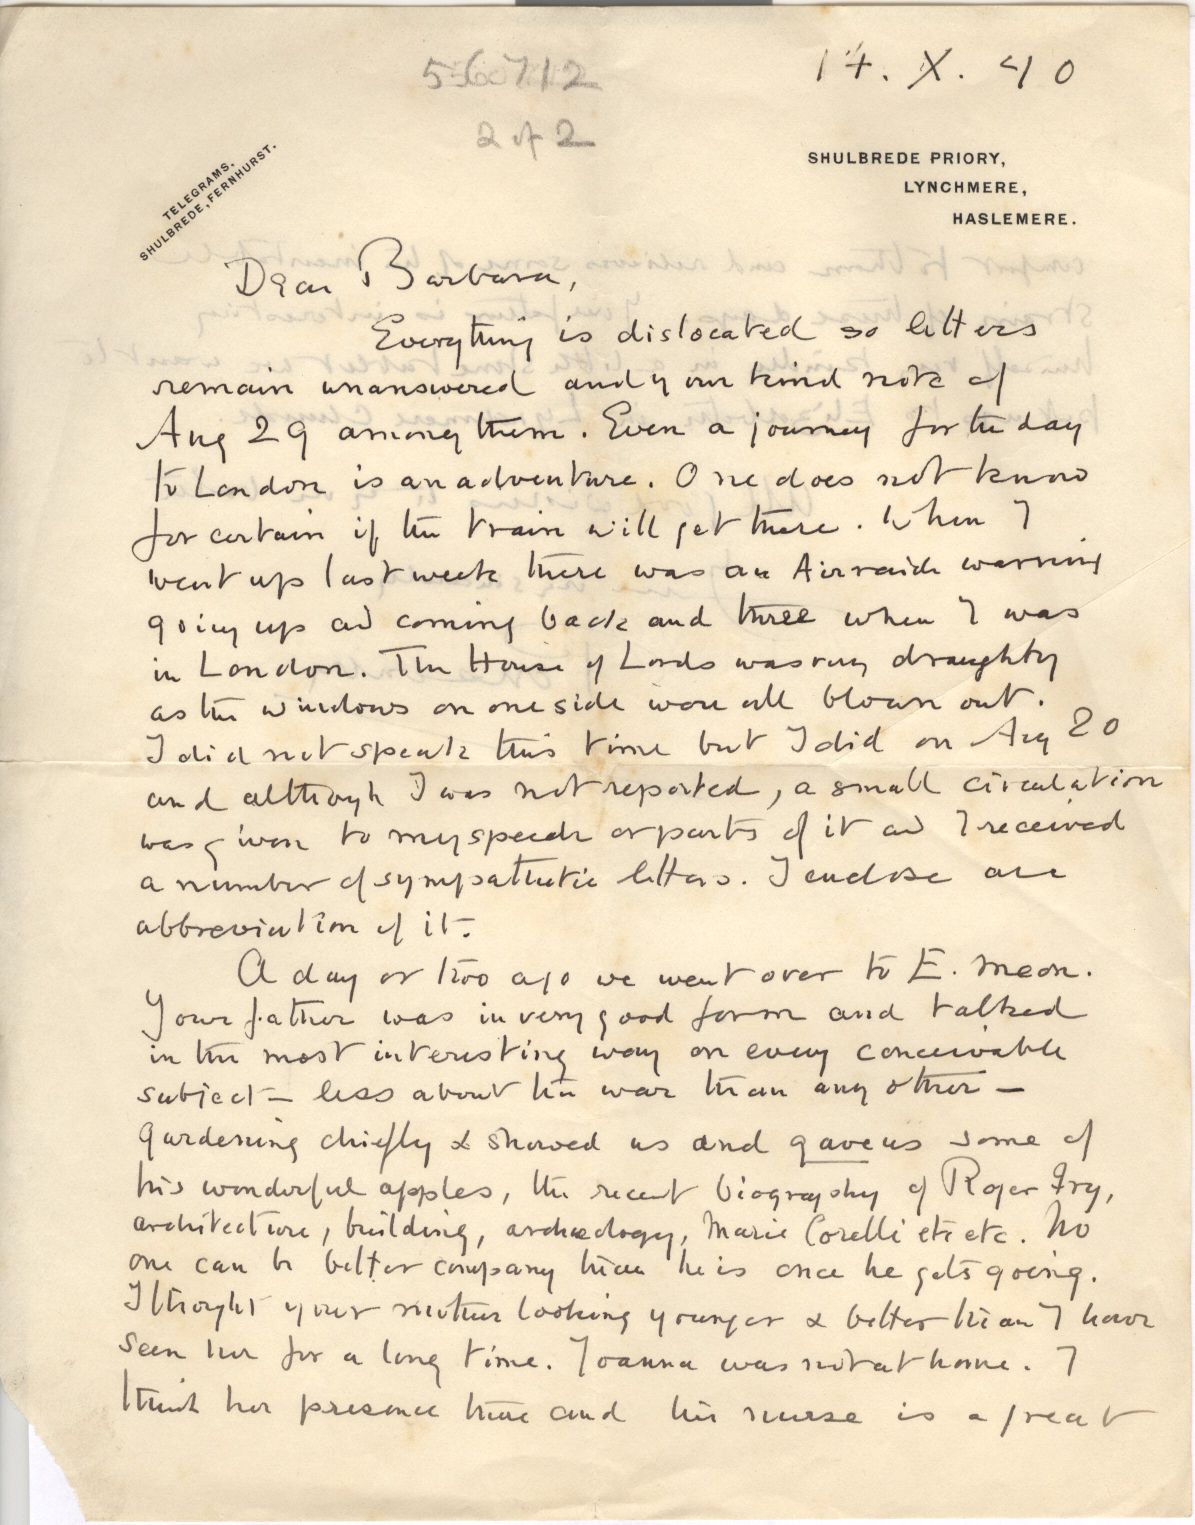 556712
2 of 2
14. X. 40
TELEGRAMS.
SHULBREDE, FERNHURST.
SHULBREDE PRIORY,
LYNCHMERE,
HASLEMERE.
Dear Barbara,
Everything is dislocated so letters
remain unanswered and your kind note of
Aug 29 among them. Even a journey for the day
to London is an adventure. One does not know
for certain if the train will get there. When I
went up last week there was an Airraid warning
going up and coming back and three when I was
in London. The House of Lords was very draughty
as the windows on one side were all blown out.
I did not speak this time but I did on Aug 20
and although I was not reported, a small circulation
was given to my speech or parts of it and I received
a number of sympathetic letters. I enclose an
abbreviation of it.
A day or two ago we went over to E. Meon.
Your father was in very good form and talked
in the most interesting way on every conceivable
subject - less about the war than any other -
gardening chiefly & showed us and gave us some of
his wonderful apples, the recent biography of Roger Fry,
architecture, building, archæology, Marie Corelli etc etc. No
one can be better company than he is once he gets going.
I thought your mother looking younger & better than I have
seen her for a long time. Joanna was not at home. I
think her presence there and the nurse is a great